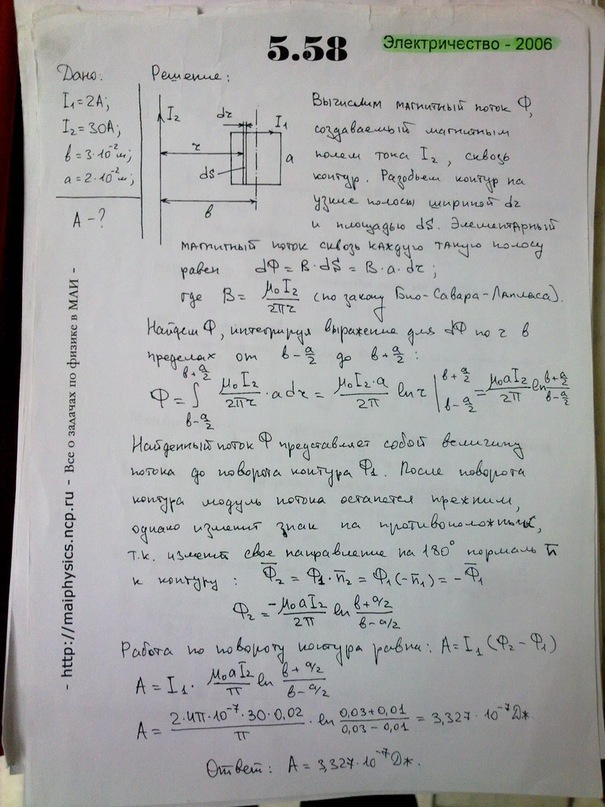 5.58
Электричество - 2006
Дано:
I₁=2А;
I₂=30А;
в=3·10⁻²м;
а=2·10⁻²м;
А-?
Решение:
I₂
dr
I₁
r
a
dS
в
Вычислим магнитный поток Ф,
создаваемый магнитным
полем тока I₂, сквозь
контур. Разобьем контур на
узкие полосы шириной dr
и площадью dS. Элементарный
магнитный поток сквозь каждую такую полосу
равен dФ = B·dS = B·a·dr;
где B = μ₀I₂/2πr (по закону Био-Савара-Лапласа).
Найдем Ф, интегрируя выражение для dФ по r в
пределах от в-a/2 до в+a/2:
Ф = ∫_{в-a/2}^{в+a/2} μ₀I₂/2πr · a dr = μ₀I₂·a/2π ln r |_{в-a/2}^{в+a/2} = μ₀aI₂/2π ln (в+a/2)/(в-a/2)
Найденный поток Ф представляет собой величину
потока до поворота контура Ф₁. После поворота
контура модуль потока останется прежним,
однако изменит знак на противоположный,
т.к. изменит свое направление на 180° нормаль n̄
к контуру: Ф̄₂ = Ф₁·n̄₂ = Ф₁(-n̄₁) = -Ф̄₁
Ф₂ = -μ₀aI₂/2π ln (в+a/2)/(в-a/2)
Работа по повороту контура равна: A=I₁(Ф₂-Ф₁)
A = I₁· μ₀aI₂/π ln (в+a/2)/(в-a/2)
A = 2·4π·10⁻⁷·30·0,02/π · ln (0,03+0,01)/(0,03-0,01) = 3,327·10⁻⁷Дж
Ответ: A = 3,327·10⁻⁷Дж.
- http://maiphysics.ncp.ru - Все о задачах по физике в МАИ -